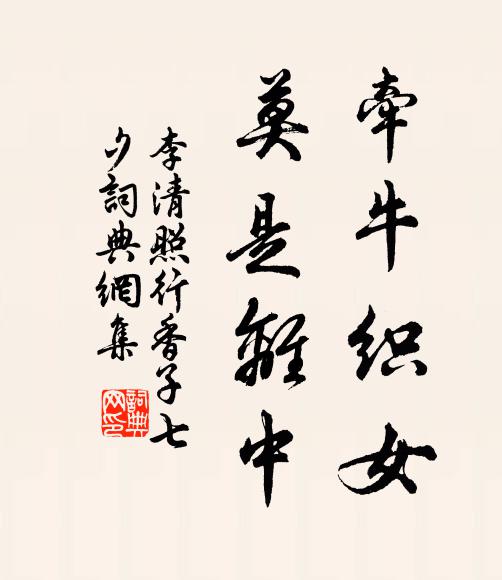 牵牛织女
莫是離中
李清照行香子七
夕詞典網集
詞典网印